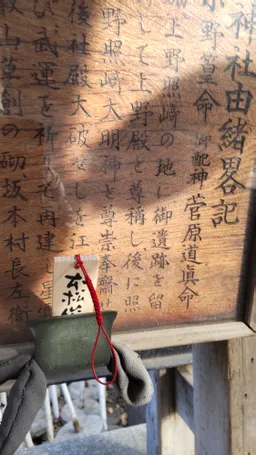 神社由緒畧記
小野篁命 御配神 菅原道眞命
上野照崎の地に御遺跡を留
して上野殿と尊稱し後に照
野照崎大明神と尊崇奉
後社殿大破せしを江
び武運を祈りて再建し星
叡山草創の砌坂本村長左衛